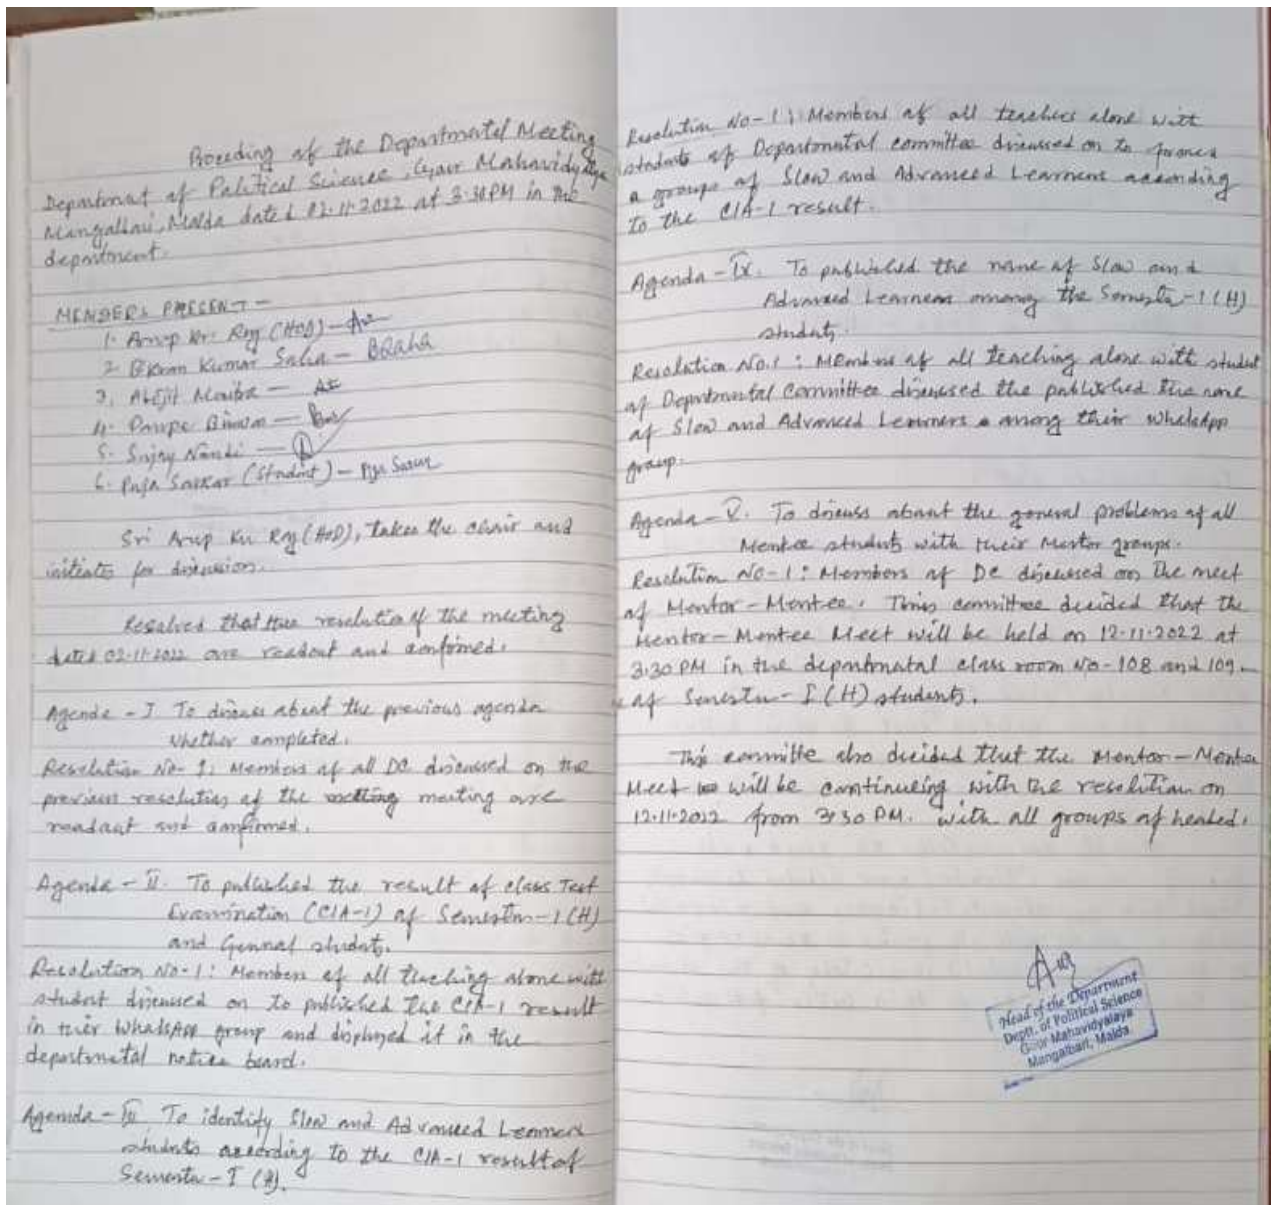 Proceding of the Departmental Meeting
Department of Political Science, Gour Mahavidyalaya
Mangalbari, Malda dated 02.11.2022 at 3.30PM in the
department.
MEMBERS PRESENT -
1. Arup Kr. Roy (HOD) -
2. Bikram Kumar Saha - BKSaha
3. Abhijit
4. Pampa Biswas -
5. Sujoy Nandi -
6. Puja Sarkar (Student) - Puja Sarkar
Sri Arup Kr Roy (HoD), takes the chair and
initiates for discussion.
Resolved that the resolution of the meeting
dated 02.11.2022 are readout and confirmed.
Agenda - I To discuss about the previous agenda
whether completed.
Resolution No- 1: Members of all DC discussed on the
previous resolution of the meeting are
readout and confirmed.
Agenda - II. To published the result of class Test
Examination (CIA-1) of Semester-1 (H)
and General students.
Resolution No-1: Members of all teaching alone with
student discussed on to published the CIA-1 result
in their WhatsApp group and displayed it in the
departmental notice board.
Agenda - III To identify Slow and Advanced Learners
students according to the CIA-1 result of
Semester - I (H).
Resolution No-1: Members of all teachers alone with
students of Departmental committee discussed on to
a groups of Slow and Advanced Learners according
to the CIA-1 result.
Agenda - IV. To published the name of Slow and
Advanced Learners among the Semester-1 (H)
students.
Resolution No.1: Members of all teaching alone with student
of Departmental Committee discussed the published the name
of Slow and Advanced Learners among their WhatsApp
group.
Agenda - V. To discuss about the general problems of all
Mentee students with their Mentor groups.
Resolution No-1: Members of DC discussed on the meet
of Mentor-Mentee. This committee decided that the
Mentor-Mentee Meet will be held on 12.11.2022 at
3.30 PM in the departmental class room No-108 and 109
of Semester-I (H) students.
This committe also decided that the Mentor-Mentee
Meet will be continueing with the resolution on
12.11.2022 from 3.30 PM. with all groups of headed.
Head of the Department
Deptt. of Political Science
Gour Mahavidyalaya
Mangalbari, Malda